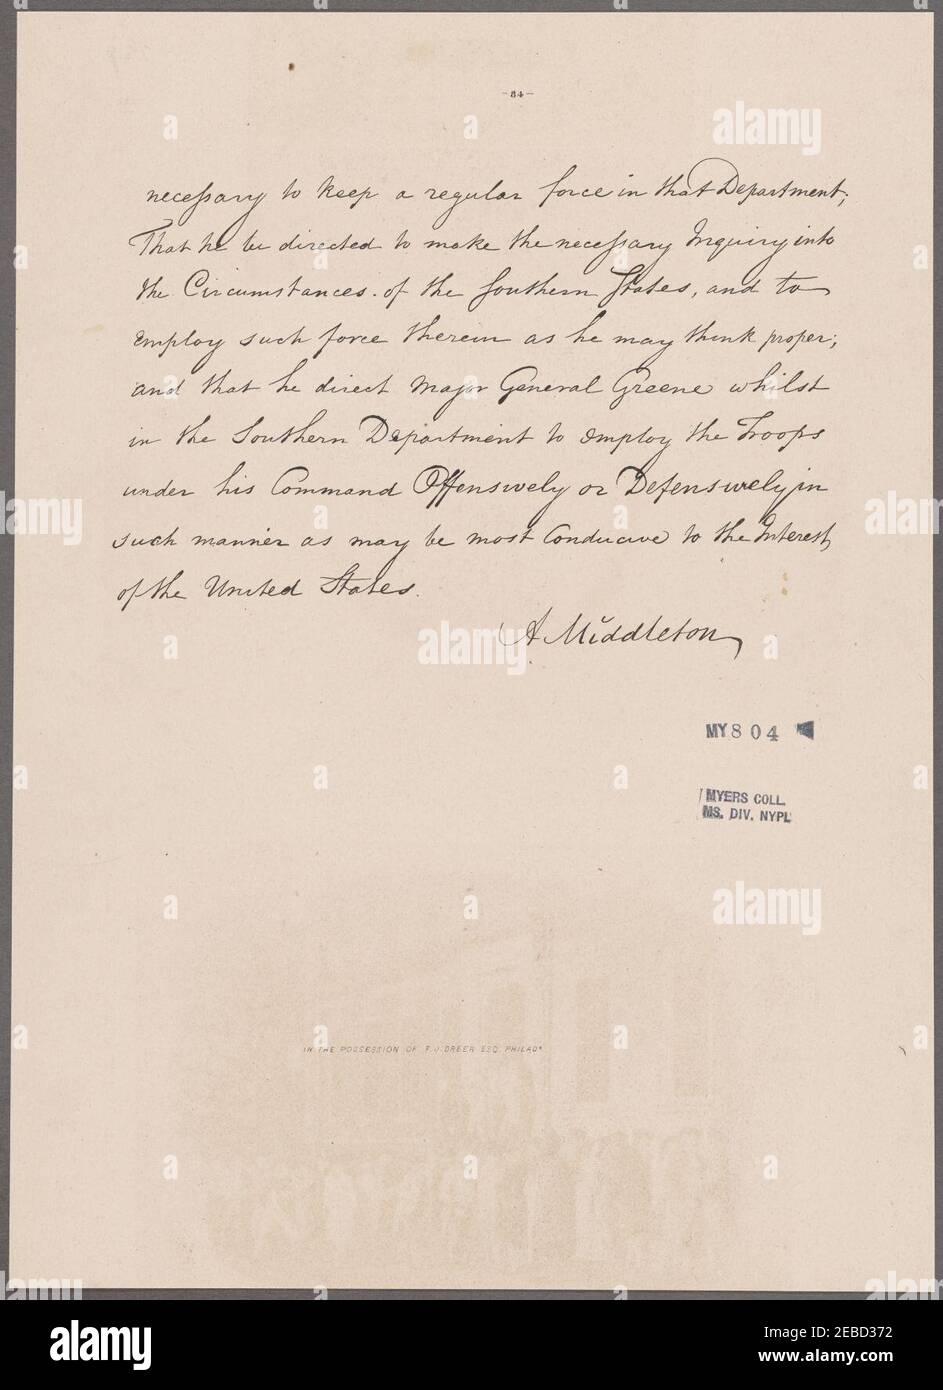 -84-
necessary to keep a regular force in that Department;
That he be directed to make the necessary Inquiry into
the Circumstances of the Southern States, and to
employ such force therein as he may think proper;
and that he direct Major General Greene whilst
in the Southern Department to employ the Troops
under his Command Offensively or Defensively in
such manner as may be most Conducive to the Interest
of the United States.
A Middleton
MY804
MYERS COLL.
MS. DIV. NYPL
IN THE POSSESSION OF F.J. DREER ESQ. PHILADA
alamy
Image ID: 2EBD372
www.alamy.com